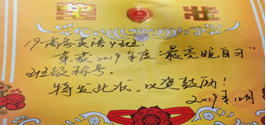 19商务英语4班:
荣获2019年度"最亮晚自习"
班级称号。
特发此状，以资鼓励！
2019年12月